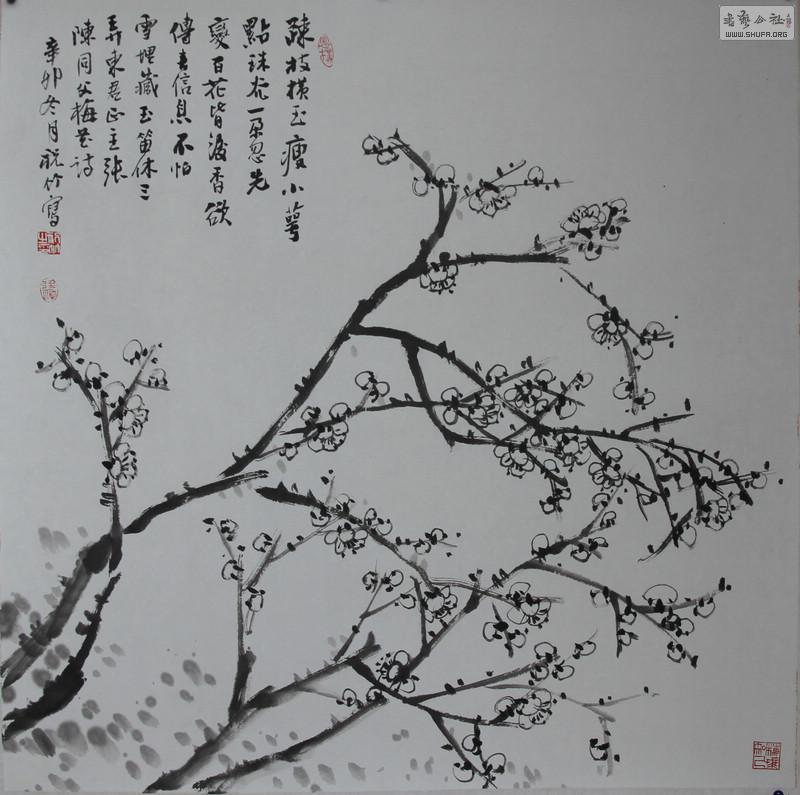 疎枝橫玉瘦小萼
點珠光一朵忽先
變百花皆後香欲
傳春信息不怕
雪埋藏玉笛休三
弄東君正主張
陳同父梅花詩
辛卯冬月祝竹寫
書藝公社
WWW.SHUFA.ORG